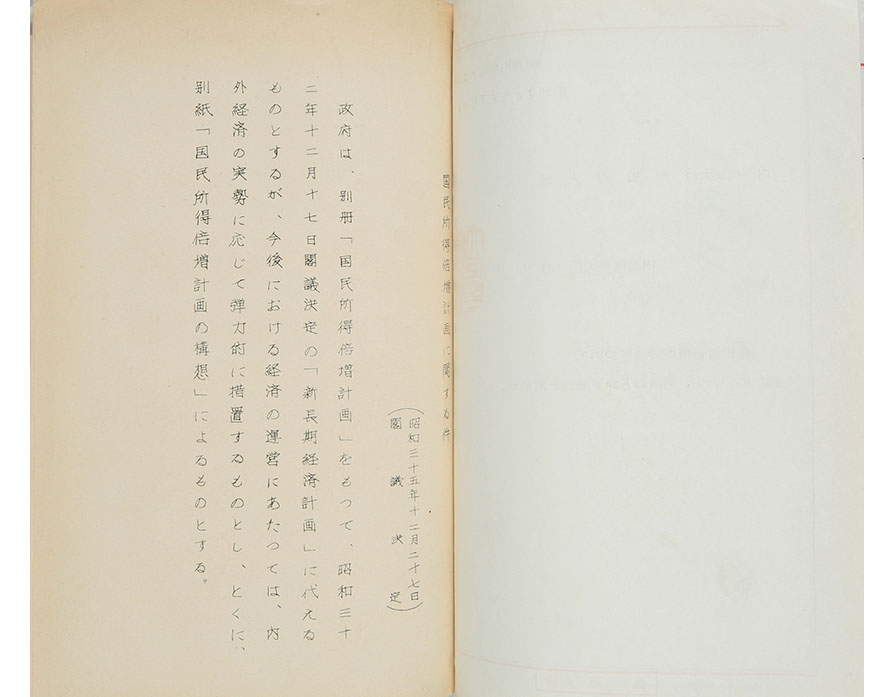 国民所得倍増計画に関する件
昭和三十五年十二月二十七日
閣議決定
政府は、別冊「国民所得倍増計画」をもつて、昭和三十
二年十二月十七日閣議決定の「新長期経済計画」に代える
ものとするが、今後における経済の運営にあたつては、内
外経済の実勢に応じて弾力的に措置するものとし、とくに、
別紙「国民所得倍増計画の構想」によるものとする。